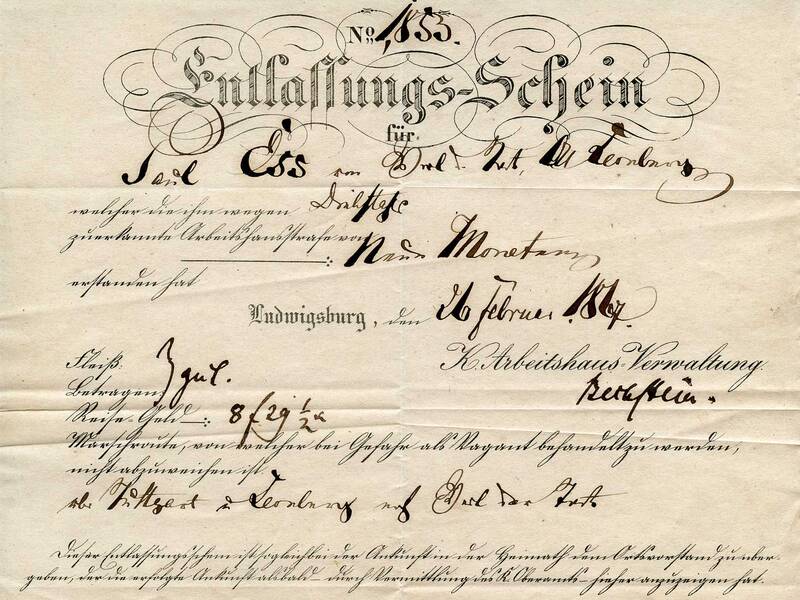 No. 1,853.
Entlassungs-Schein
für
Paul Ess von Weil der Stadt, OA Leonberg
welcher die ihm wegen Diebstahls
zuerkannte Arbeitshausstrafe von
Neun Monaten
erstanden hat
Ludwigsburg, den 26 Februar 1867.
Fleiß:
K. Arbeitshaus-Verwaltung.
Betragen: } gut.
Reise-Geld —: 8 f 29 1/2 x
Marschroute, von welcher bei Gefahr als Vagant behandelt zu werden,
nicht abzuweichen ist.
über Stuttgart u Leonberg nach Weil der Stadt.
Dieser Entlassungsschein ist sogleich bei der Ankunft in der Heimath dem Ortsvorstand zu über-
geben, der die erfolgte Ankunft alsbald – durch Vermittlung des K. Oberamts – hieher anzuzeigen hat.